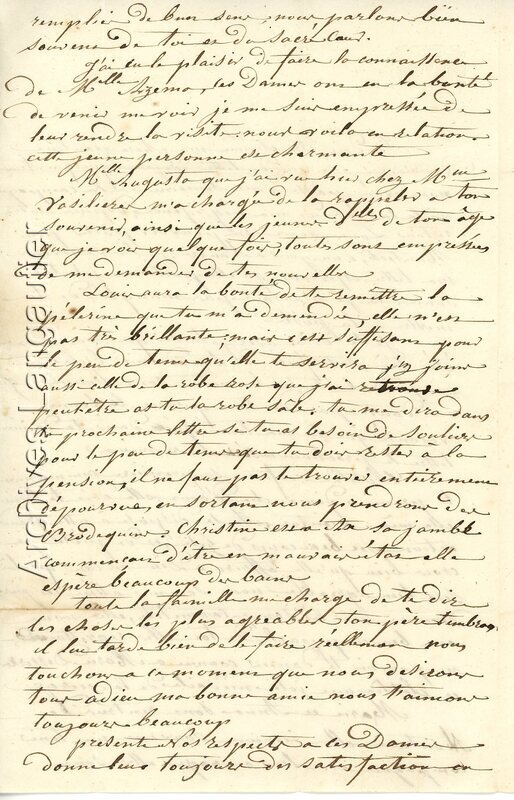 remplie de bon sens, nous parlons bien
souvent de toi et du sacré Cœur.
J'ai eu le plaisir de faire la connaissance
de Melle ces Dames ont eu la bonté
de venir me voir je me suis empressée de
leur rendre la visite. nous voila en relation
cette jeune personne est charmante
Melle Augusta que j'ai vu hier chez Mme
m'a chargée de la rappeler a ton
souvenir, ainsi que les jeunes Delles de ton âge
que je vois quelque fois, toutes sont empressées
de me demander de tes nouvelles
Louis aura la bonté de te remettre la
pèlerine que tu m'a demandée, elle n'est
pas très brillante, mais c'est suffisant pour
le peu de tems qu'elle te servira j'y joins
aussi celle de la robe rose que j'ai retrouvée
peutêtre as tu la robe sâle, tu me dira dans
ta prochaine lettre si tu as besoin de souliers
pour le peu de tems que tu dois rester à la
pension, il ne faut pas te trouver entièrement
dépourvue, en sortant nous prendrons des
Brodequins. Christine est a sa jambe
commençait d'être en mauvais état elle
espère beaucoup des bains
toute la famille me charge de te dire
les choses les plus agréables ton père t'embrasse
il lui tarde bien de le faire réellement nous
touchons a ce moment que nous desirons
tous adieu ma bonne amie nous t'aimons
toujours beaucoup
présente nos respects a ces Dames
donne leur toujours des satisfaction et
Archives Langautier